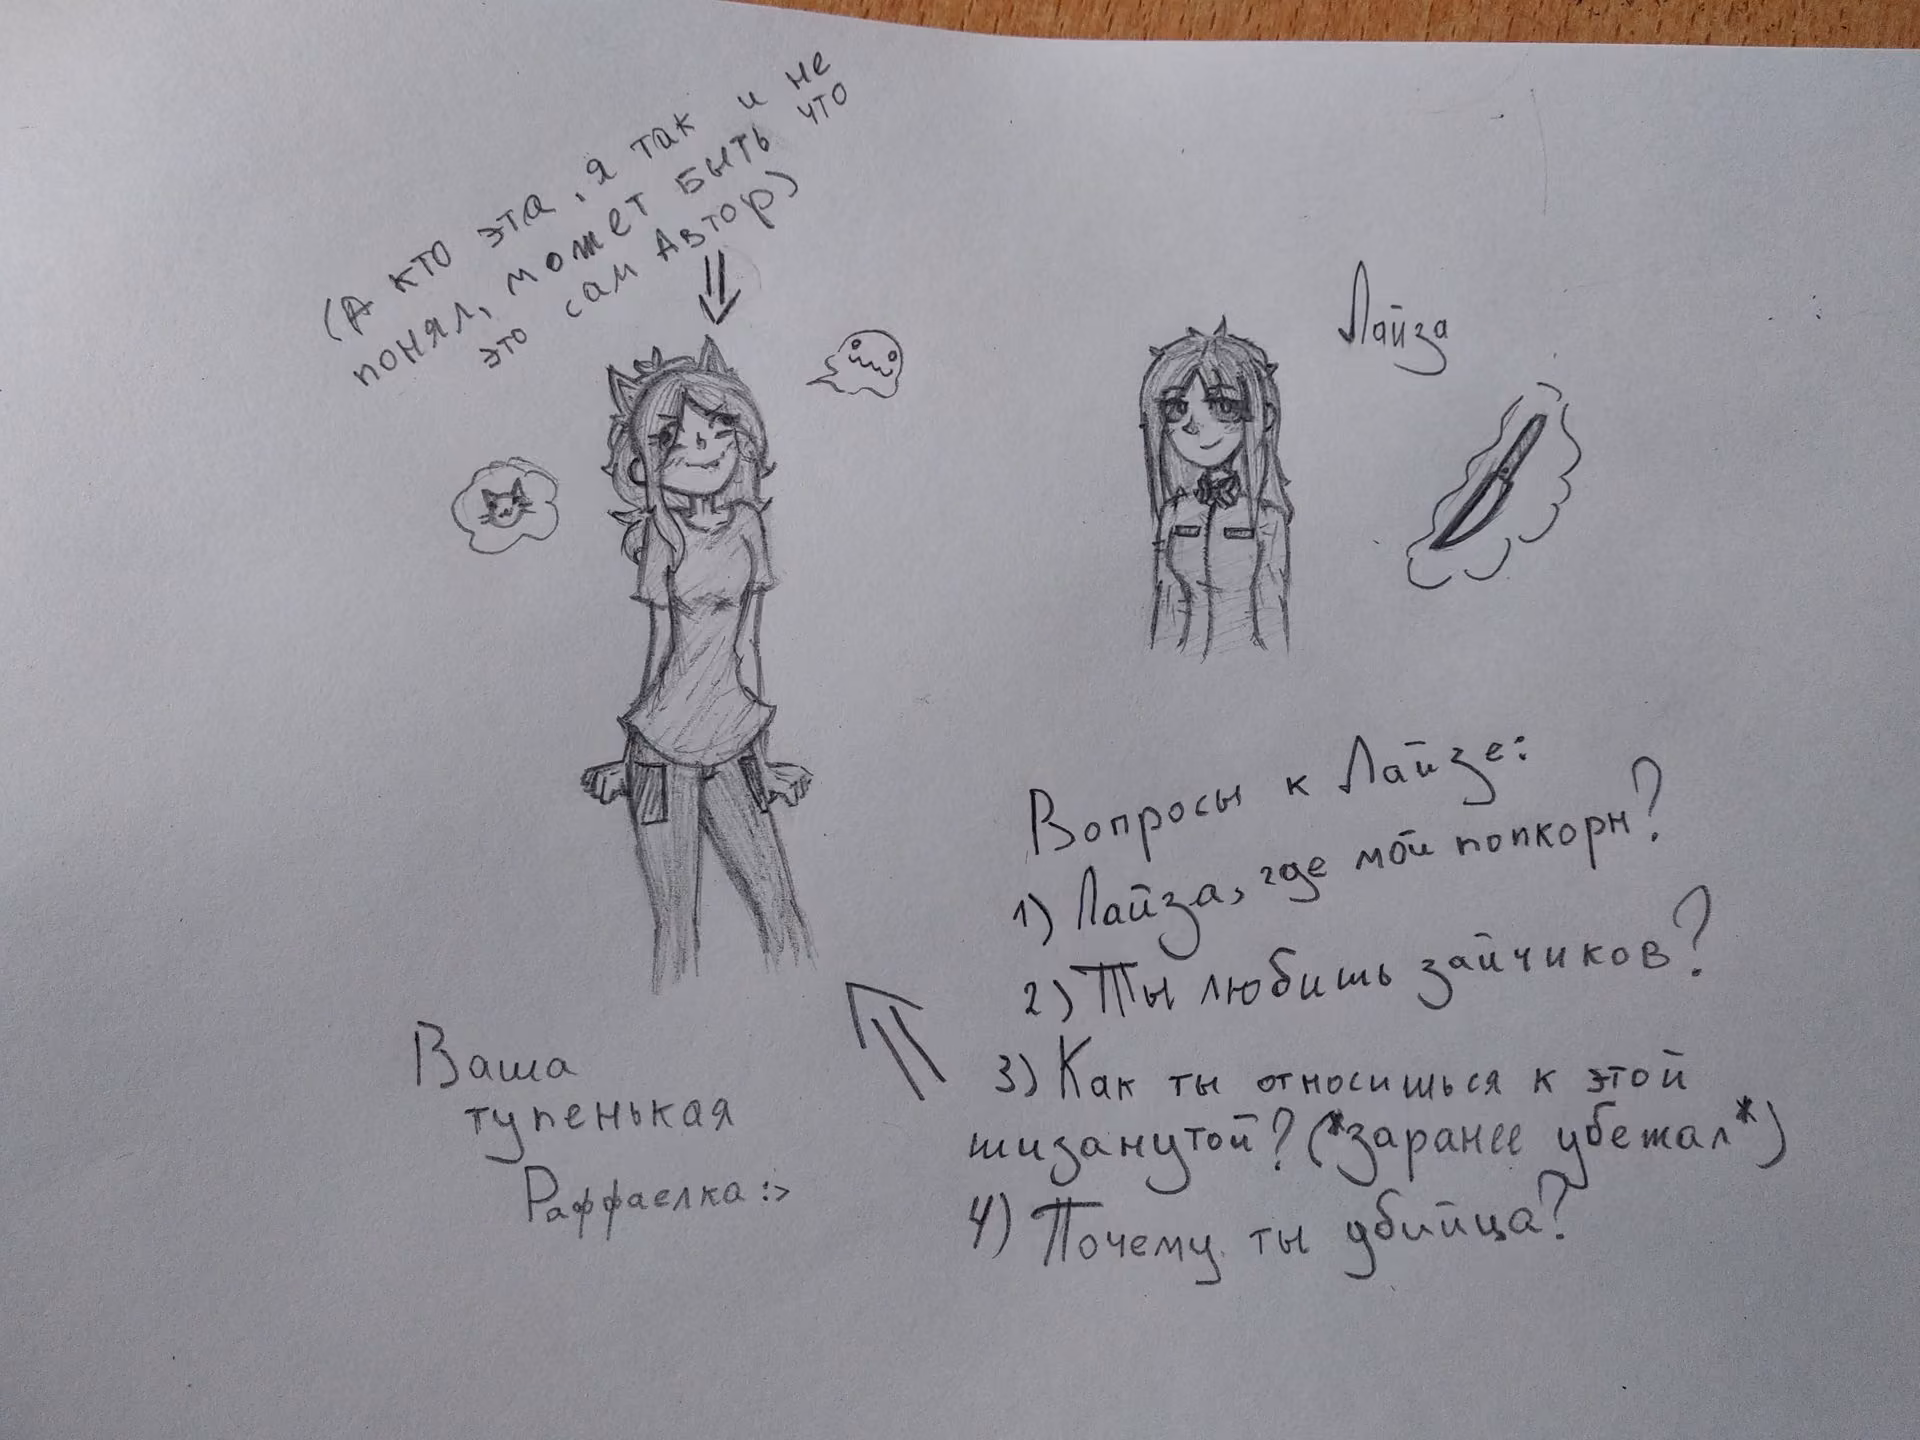 (А кто эта, я так и не
понял, может быть что
это сам Автор)
Лайза
Вопросы к Лайзе:
1) Лайза, где мой попкорн?
2) Ты любишь зайчиков?
3) Как ты относишься к этой
шизанутой? (*заранее убежал*)
4) Почему ты убийца?
Ваша
тупенькая
Раффаелка :>